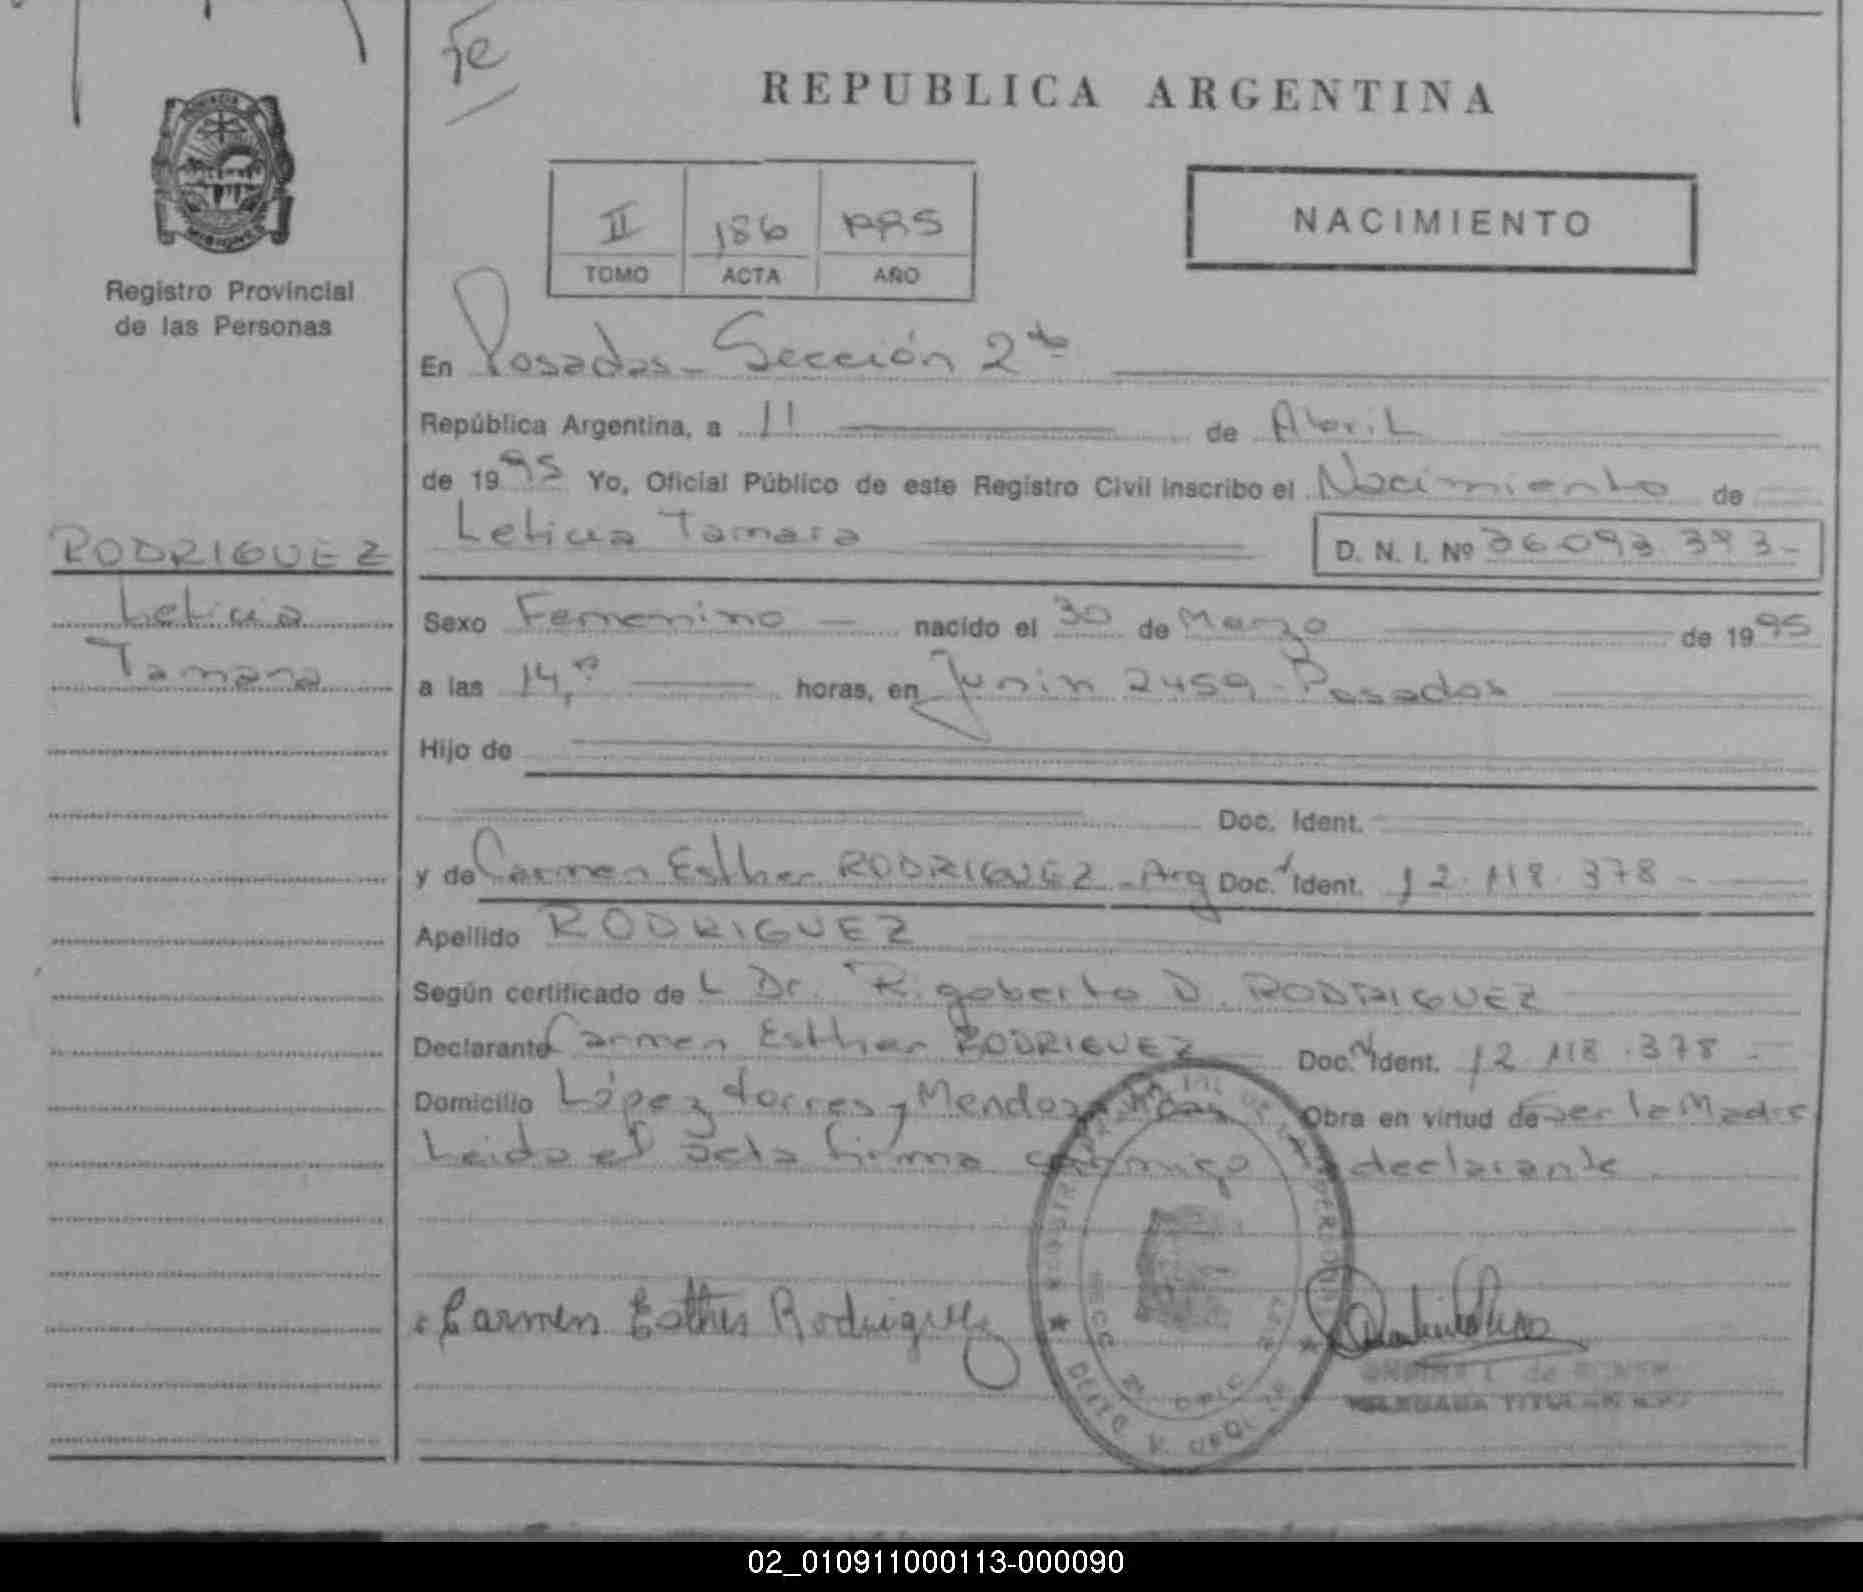 Fe
REPUBLICA ARGENTINA
MISIONES
Registro Provincial
de las Personas
II 186 1995
TOMO ACTA AÑO
NACIMIENTO
En Posadas - Sección 2da
República Argentina, a 11 de Abril
de 1995 Yo, Oficial Público de este Registro Civil inscribo el Nacimiento de
Leticia Tamara D. N. I. Nº 36.093.393-
RODRIGUEZ
Leticia
Tamara
Sexo Femenino nacido el 30 de Marzo de 1995
a las 14, horas, en Junín 2459 - Posadas
Hijo de
Doc. Ident.
y de Carmen Esther RODRIGUEZ - Arg Doc. Ident. 12.118.378 -
Apellido RODRIGUEZ
Según certificado de L Dr. Rigoberto D. RODRIGUEZ
Declarante Carmen Esther RODRIGUEZ Doc. Ident. 12.118.378 -
Domicilio López torres y Mendoza Obra en virtud de ser la Madre
Leida el acta firma conmigo la declarante
Carmen Esther Rodriguez
TITULAR
02_010911000113-000090